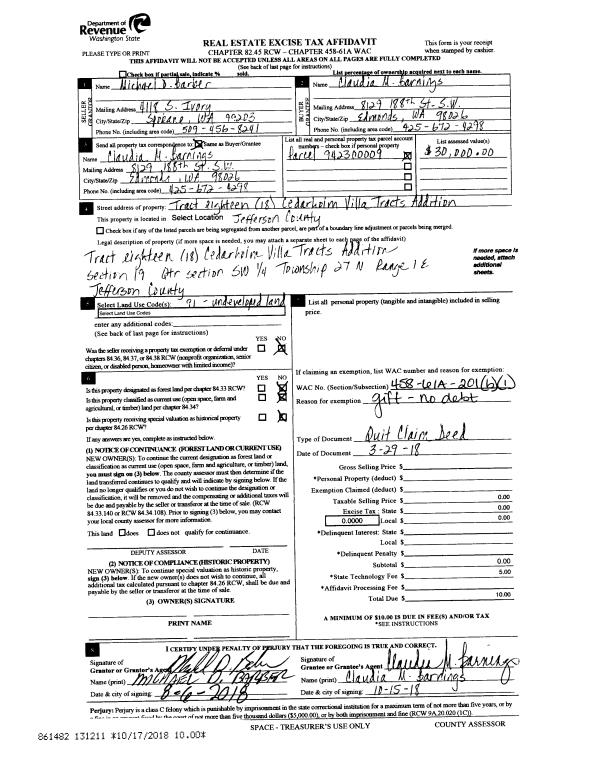 Department of
Revenue
Washington State
PLEASE TYPE OR PRINT
REAL ESTATE EXCISE TAX AFFIDAVIT
CHAPTER 82.45 RCW – CHAPTER 458-61A WAC
This form is your receipt
when stamped by cashier.
THIS AFFIDAVIT WILL NOT BE ACCEPTED UNLESS ALL AREAS ON ALL PAGES ARE FULLY COMPLETED
(See back of last page for instructions)
Check box if partial sale, indicate % sold.
List percentage of ownership acquired next to each name.
1 Name Michael D. Barber
SELLER GRANTOR
Mailing Address 4118 S. Ivory
City/State/Zip Spokane, WA 99203
Phone No. (including area code) 509-456-8241
2 Name Claudia M. Barnings
BUYER GRANTEE
Mailing Address 8129 188th St. S.W.
City/State/Zip Edmonds, WA 98026
Phone No. (including area code) 425-672-4298
3 Send all property tax correspondence to: Same as Buyer/Grantee
Name Claudia M. Barnings
Mailing Address 8129 188th St. S.W.
City/State/Zip Edmonds, WA 98026
Phone No. (including area code) 425-672-4298
List all real and personal property tax parcel account
numbers – check box if personal property
Parcel 942300009
List assessed value(s)
$30,000.00
4 Street address of property: Tract eighteen (18) Cedarholm Villa Tracts Addition
This property is located in Select Location Jefferson County
Check box if any of the listed parcels are being segregated from another parcel, are part of a boundary line adjustment or parcels being merged.
Legal description of property (if more space is needed, you may attach a separate sheet to each page of the affidavit)
Tract eighteen (18) Cedarholm Villa Tracts Addition
Section 19 Qtr section SW 1/4 Township 27 N Range 1 E
Jefferson County
If more space is
needed, attach
additional
sheets.
5 Select Land Use Code(s): 91 - undeveloped land
Select Land Use Codes
enter any additional codes:
(See back of last page for instructions)
YES NO
Was the seller receiving a property tax exemption or deferral under
chapters 84.36, 84.37, or 84.38 RCW (nonprofit organization, senior
citizen, or disabled person, homeowner with limited income)?
6 YES NO
Is this property designated as forest land per chapter 84.33 RCW?
Is this property classified as current use (open space, farm and
agricultural, or timber) land per chapter 84.34?
Is this property receiving special valuation as historical property
per chapter 84.26 RCW?
If any answers are yes, complete as instructed below.
(1) NOTICE OF CONTINUANCE (FOREST LAND OR CURRENT USE)
NEW OWNER(S): To continue the current designation as forest land or
classification as current use (open space, farm and agriculture, or timber) land,
you must sign on (3) below. The county assessor must then determine if the
land transferred continues to qualify and will indicate by signing below. If the
land no longer qualifies or you do not wish to continue the designation or
classification, it will be removed and the compensating or additional taxes will
be due and payable by the seller or transferor at the time of sale. (RCW
84.33.140 or RCW 84.34.108). Prior to signing (3) below, you may contact
your local county assessor for more information.
This land does does not qualify for continuance.
DEPUTY ASSESSOR DATE
(2) NOTICE OF COMPLIANCE (HISTORIC PROPERTY)
NEW OWNER(S): To continue special valuation as historic property,
sign (3) below. If the new owner(s) does not wish to continue, all
additional tax calculated pursuant to chapter 84.26 RCW, shall be due and
payable by the seller or transferor at the time of sale.
(3) OWNER(S) SIGNATURE
PRINT NAME
7 List all personal property (tangible and intangible) included in selling
price.
If claiming an exemption, list WAC number and reason for exemption:
WAC No. (Section/Subsection) 458-61A-201(b)(1)
Reason for exemption
gift - no debt
Type of Document Quit Claim Deed
Date of Document 3-29-18
Gross Selling Price $
*Personal Property (deduct) $
Exemption Claimed (deduct) $
Taxable Selling Price $ 0.00
Excise Tax : State $ 0.00
0.0000 Local $ 0.00
*Delinquent Interest: State $
Local $
*Delinquent Penalty $
Subtotal $ 0.00
*State Technology Fee $ 5.00
*Affidavit Processing Fee $
Total Due $ 10.00
A MINIMUM OF $10.00 IS DUE IN FEE(S) AND/OR TAX
*SEE INSTRUCTIONS
8 I CERTIFY UNDER PENALTY OF PERJURY THAT THE FOREGOING IS TRUE AND CORRECT.
Signature of
Grantor or Grantor's Agent
Name (print) MICHAEL D. BARBER
Date & city of signing: 8-6-2018
Signature of
Grantee or Grantee's Agent Claudia M. Barnings
Name (print) Claudia M. Barnings
Date & city of signing: 10-15-18
Perjury: Perjury is a class C felony which is punishable by imprisonment in the state correctional institution for a maximum term of not more than five years, or by
a fine in an amount fixed by the court of not more than five thousand dollars ($5,000.00), or by both imprisonment and fine (RCW 9A.20.020 (1C)).
SPACE - TREASURER'S USE ONLY
COUNTY ASSESSOR
861482 131211 *10/17/2018 10.00*